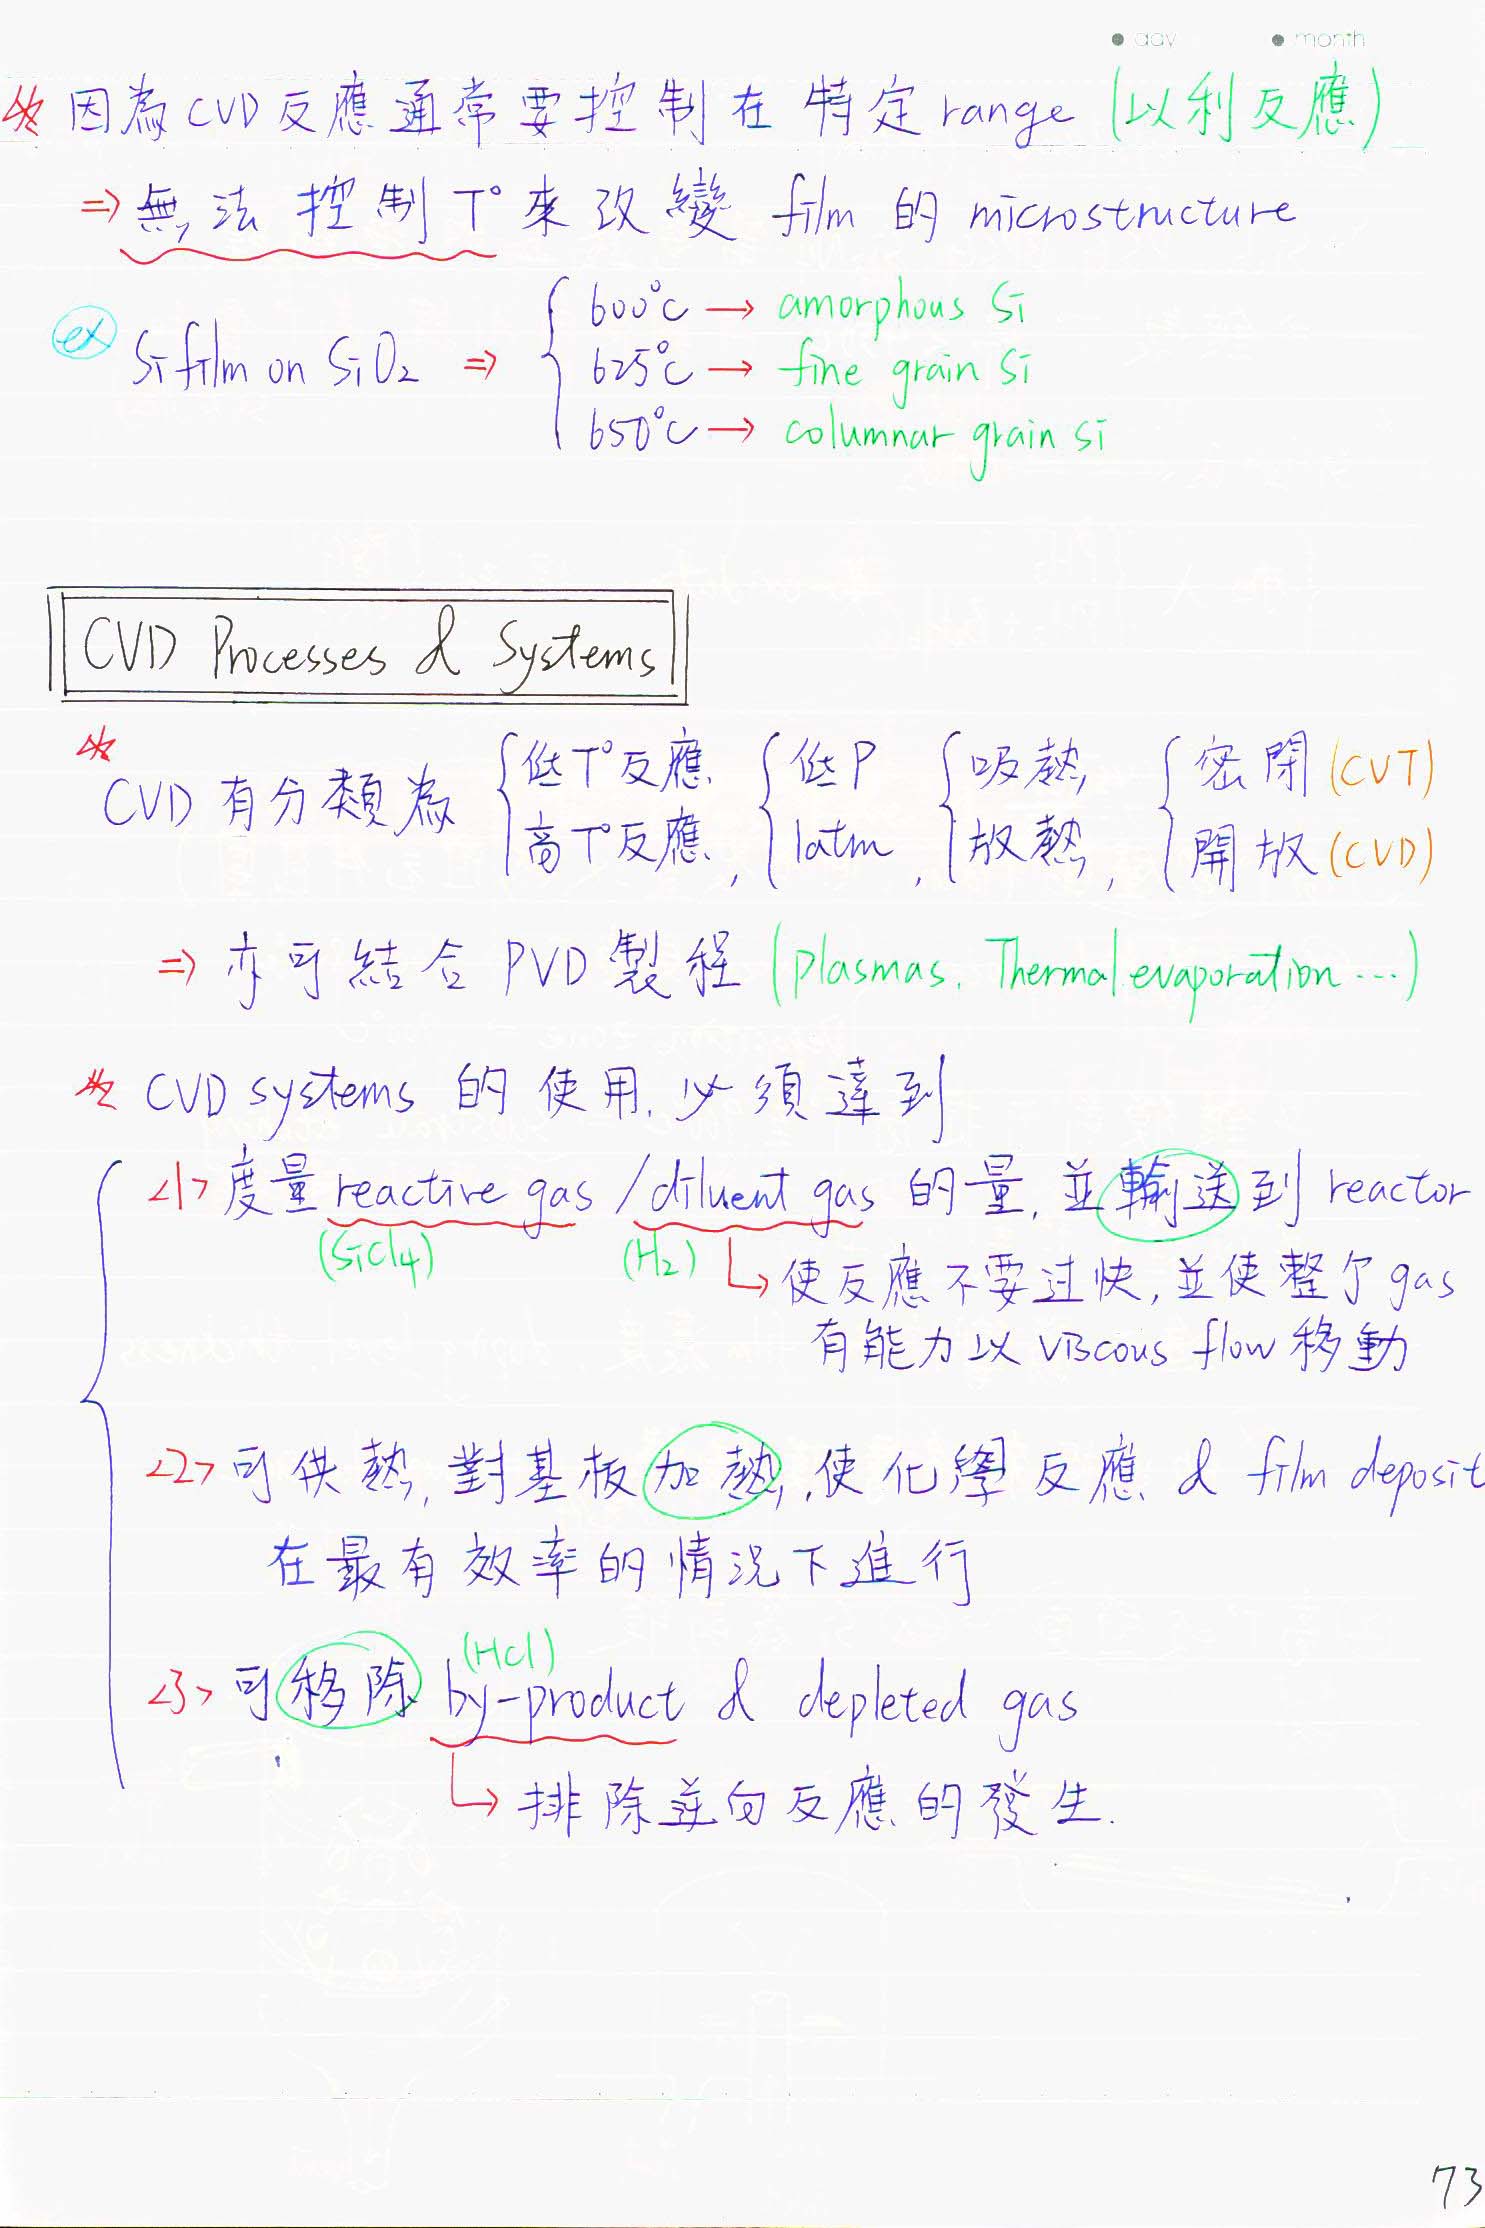 day month
因為CVD反應通常要控制在特定range (以利反應)
⇒ 無法控制T°來改變 film 的 microstructure
ex Si film on SiO2 ⇒ { 600°C → amorphous Si
625°C → fine grain Si
650°C → columnar grain Si
CVD Processes & Systems
CVD有分類為 { 低T°反應 { 低P { 吸熱 { 密閉 (CVT)
高T°反應, 1atm, 放熱, 開放 (CVD)
⇒ 亦可結合 PVD製程 (plasmas. Thermal evaporation …)
CVD systems 的使用.必須達到
<1> 度量 reactive gas / diluent gas 的量, 並輸送到 reactor
(SiCl4) (H2) → 使反應不要过快, 並使整个 gas
有能力以 viscous flow 移動
<2> 可供熱, 對基板加熱, 使化學反應 & film deposit
在最有效率的情況下進行
(HCl)
<3> 可移除 by-product & depleted gas
→ 排除逆向反應的發生.
73